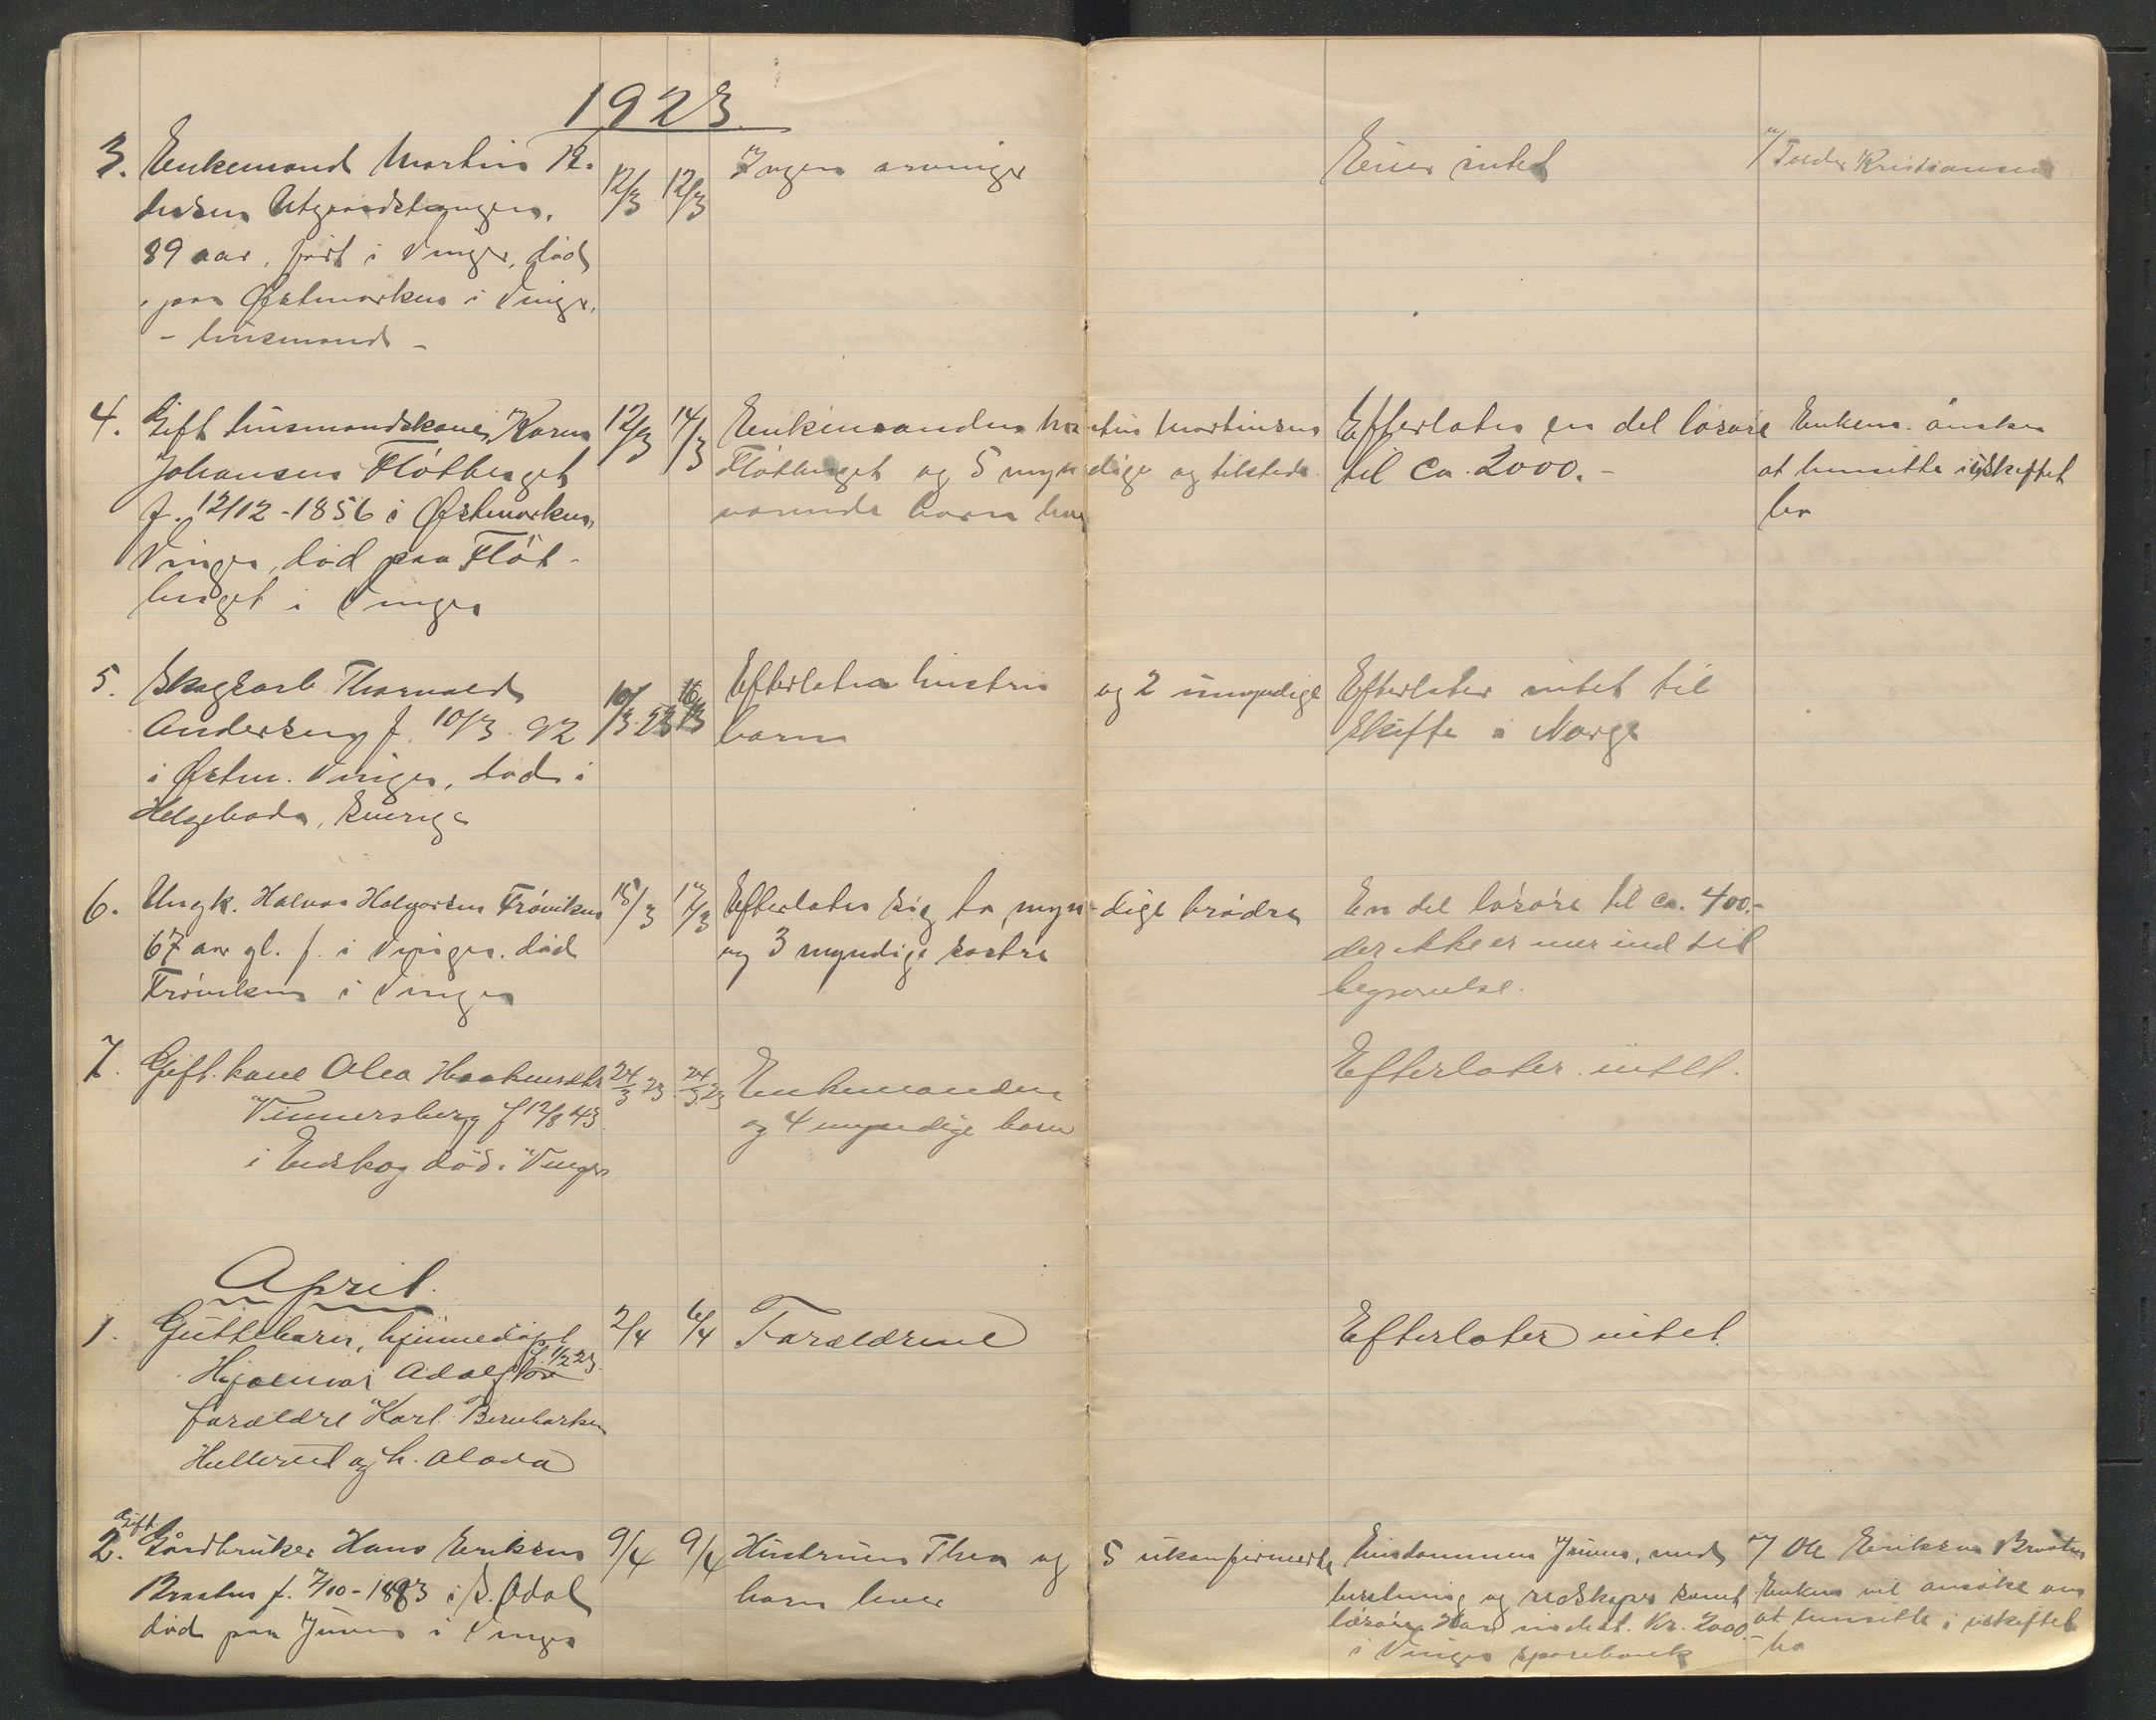 1923.
3. Enkemand Martin P. 12/3 12/3 Ingen arvinger Eier intet v/ Peder Kristiansen
Utgaardstangen,
89 aar, født i Vinger, død
paa Østmarken i Vinger,
- husmand -
4. Gift husmandskone Karen 12/3 14/3 Enkemanden Martin Martinsen Efterlater en del løsøre Enkem. ønsker
Johansen Fløtberget Fløtberget og 5 myndige og tilstede til ca. 2000.- at hensitte i uskiftet
f. 12/12-1856 i Østmarken, værende barn bo
Vinger, død paa Fløt-
berget i Vinger
5. Skogsarb. Thorvald 10/3.23 16/3 Efterlater hustru og 2 umyndige Efterlater intet til
Andersen f. 10/3.92 barn Skifte i Norge
i Østm. Vinger, død i
Helgeboda, Sverige
6. Ungk. Halvor Halvorsen Trøviken 15/3 17/3 Efterlater sig to myn-dige brødre En del løsøre til ca. 400.-
67 aar gl. f. i Vinger. død og 3 myndige søstre der ikke er mer end til
Trøviken i Vinger begravelse.
7. Gift. kone Olea Haakensdtr 24/3 23 24/3 23 Enkemanden Efterlater intet.
Vinnersberg f 12/8 43 og 4 myndige barn
i Eidskog død i Vinger
April.
1. Guttebarn, hjemmedøpt 2/4 6/4 Forældrene Efterlater intet.
Hjalmar Adolf f. 1/2 23.
forældre Karl Bernhardsen
Hullerud og h. Alova
Gift.
2. Gaardbruker Hans Eriksen 9/4 9/4 Hustruen Thea og 5 ukonfirmerte Eiendommen Juven, med v/ Ole Eriksen Braaten
Braaten f. 7/10-1883 i S. Odal barn lever besetning og redskaper samt Enken vil ansøke om
død paa Juven i Vinger løsøre. Har indest. Kr. 2000.- at hensitte i uskiftet
i Vinger sparebank bo